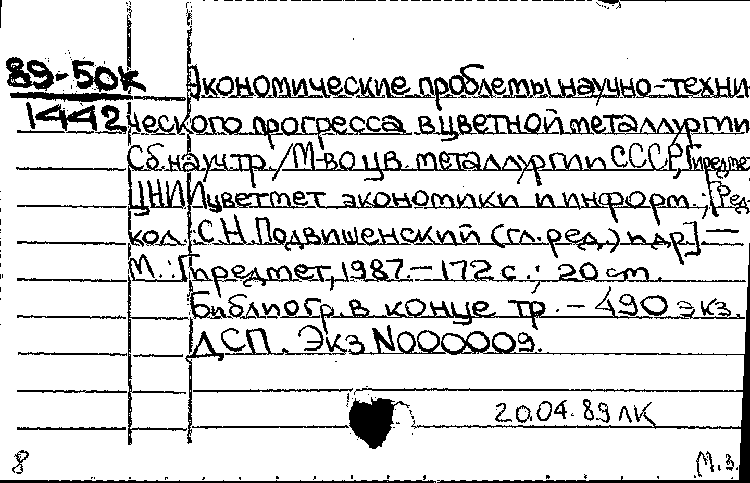 89-50к Экономические проблемы научно-техни
1442 ческого прогресса в цветной металлургии
Сб. науч. тр. / М-во цв. металлургии СССР, Гиредмет
ЦНИИцветмет экономики и информ.; [Ред-
кол. С.Н. Подвишенский (гл. ред.) и др.] —
М.: Гиредмет, 1987. — 172 с.; 20 см.
Библиогр. в конце тр. — 490 экз.
ДСП. Экз N000009.
20.04.89 ЛК
8 М.З.